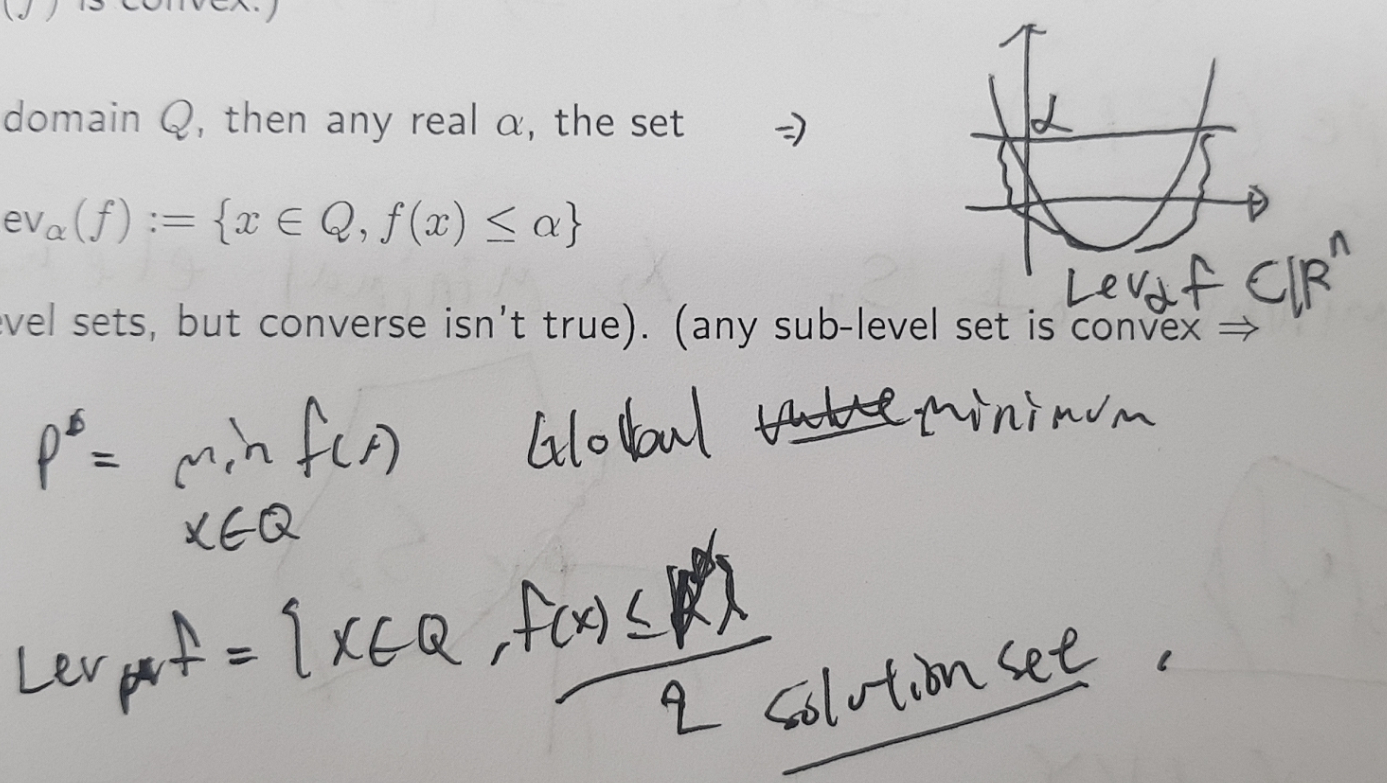 is convex.)
domain Q, then any real α, the set ⇒
α
ev_α(f) := {x ∈ Q, f(x) ≤ α}
Lev_α f ⊂ ℝⁿ
vel sets, but converse isn't true). (any sub-level set is convex ⇒
p* = min f(x) Global minimum
x∈Q
Lev f = {x∈Q, f(x) ≤
solution set